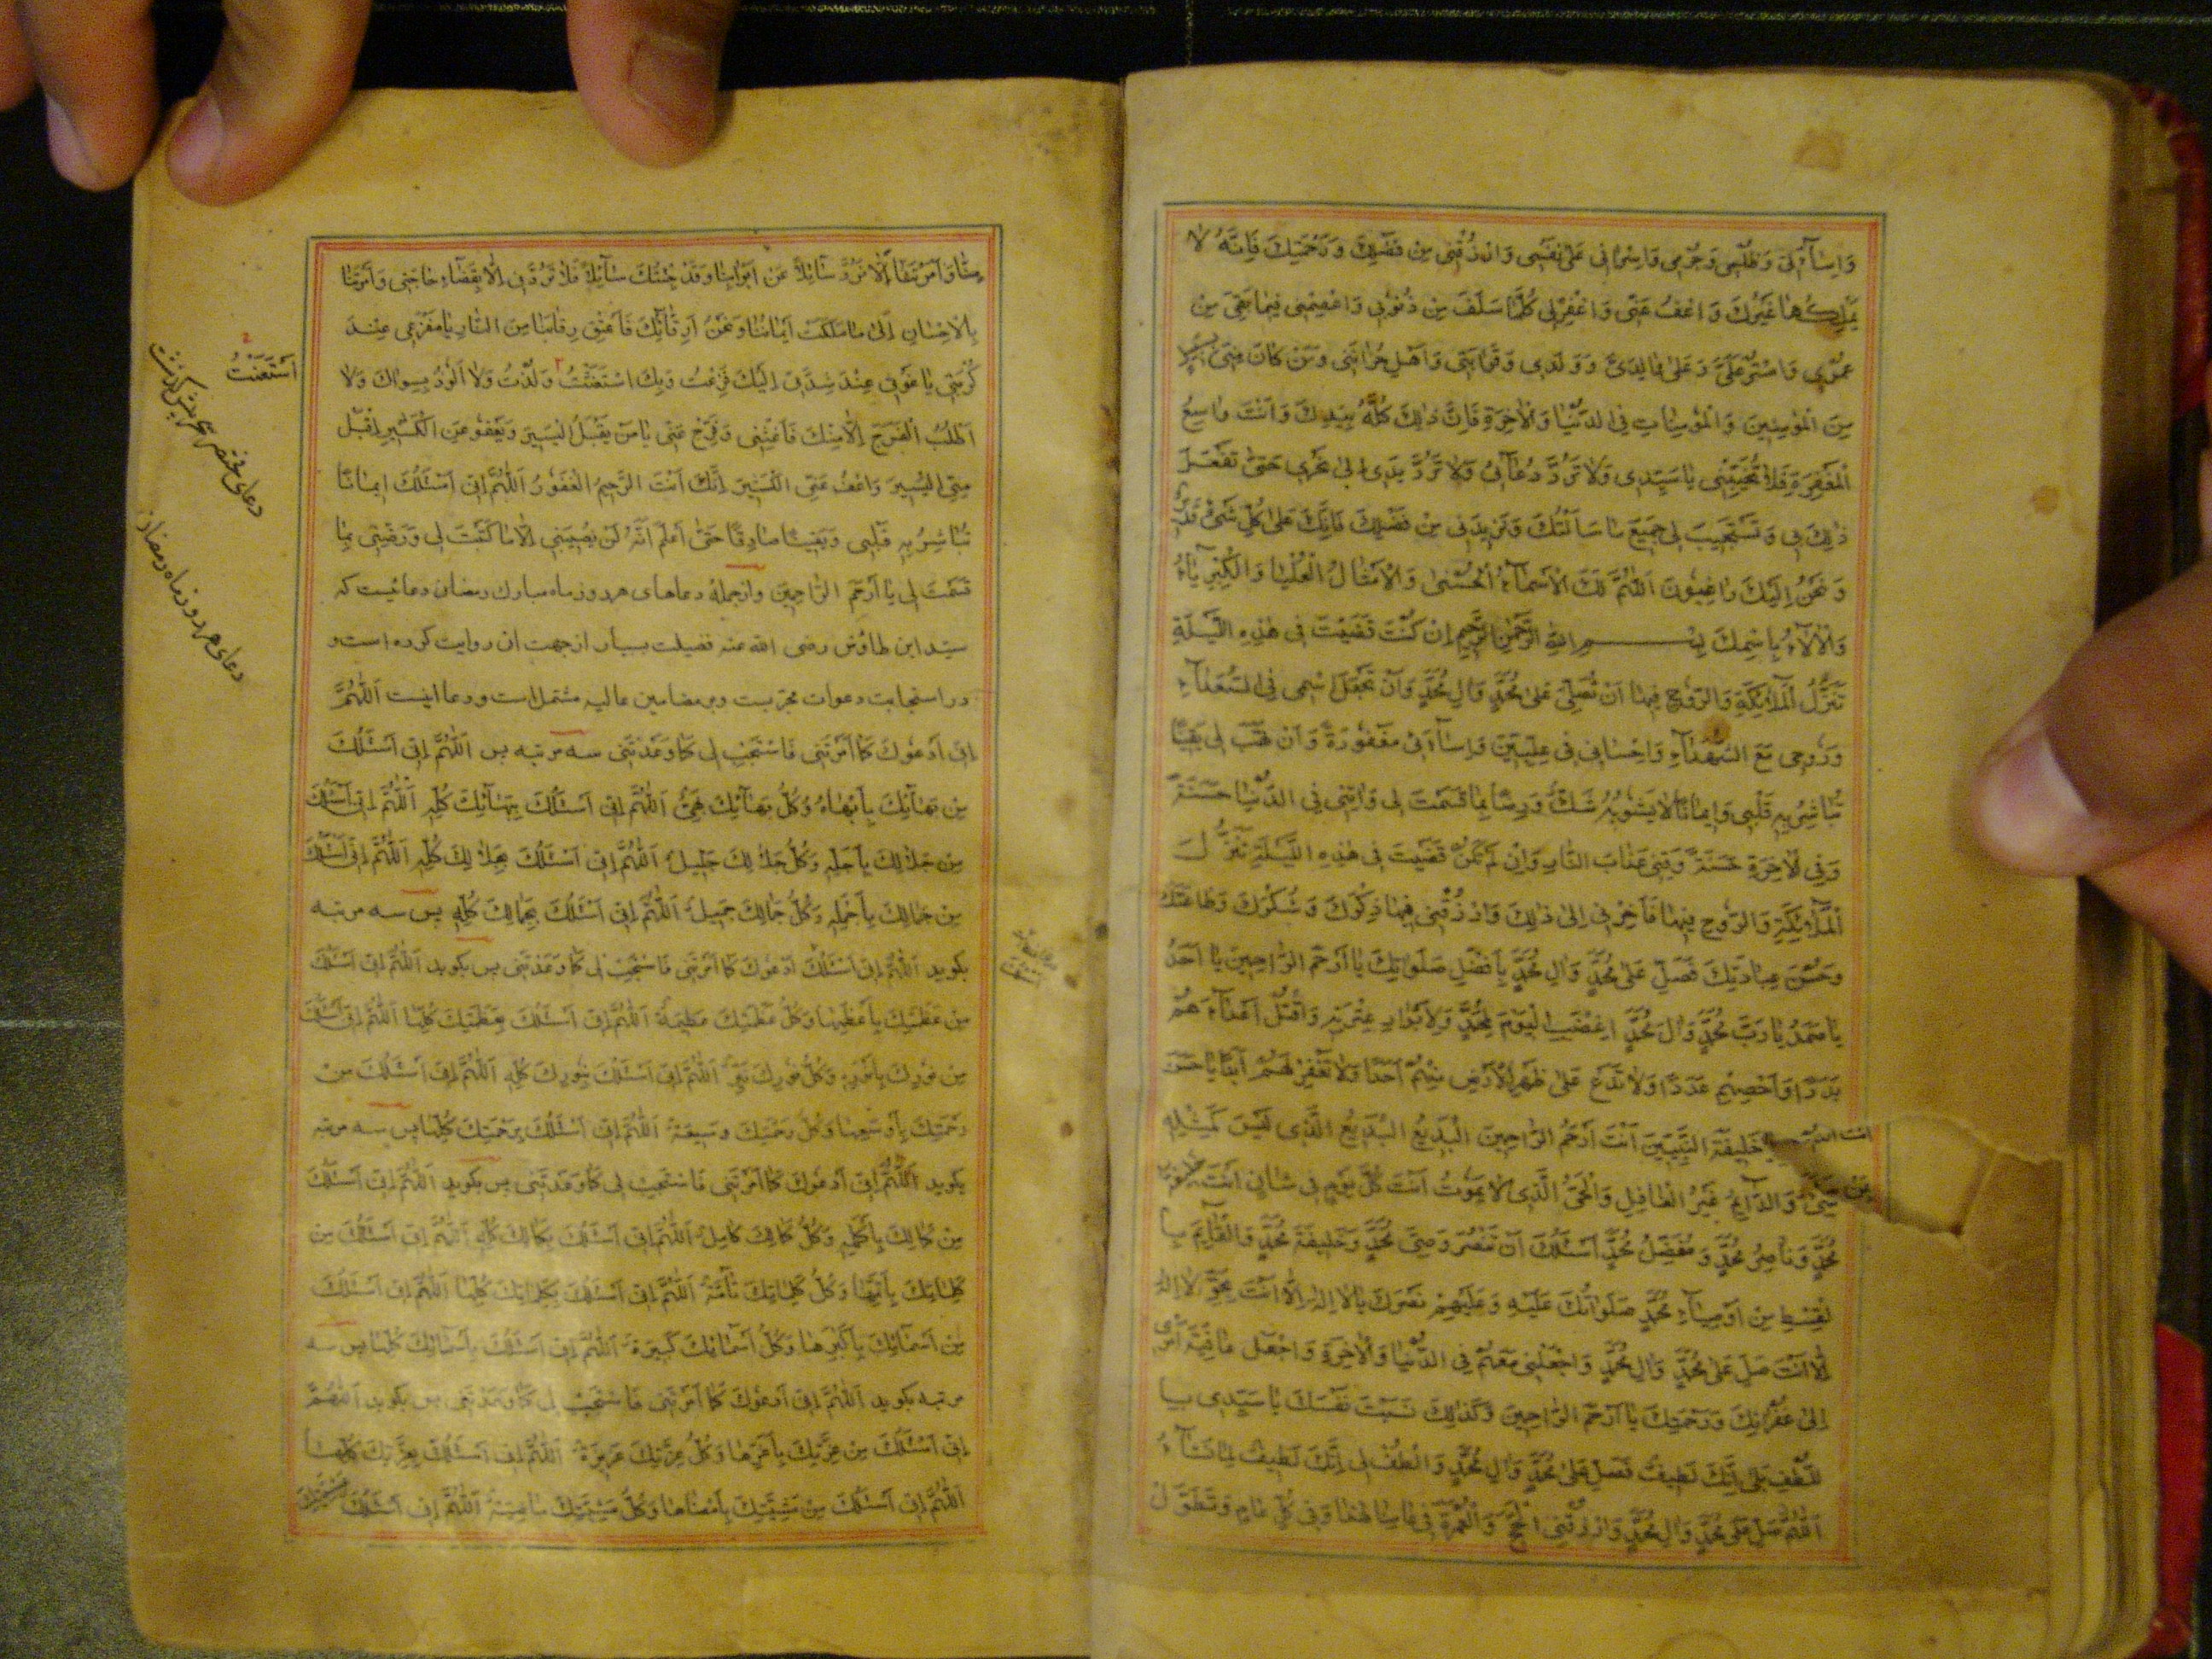 وَاِسَاءَتِی وَظُلْمِی وَجُرْمِی وَاِسْرَافِی عَلٰی نَفْسِی وَارْزُقْنِی مِنْ فَضْلِکَ وَرَحْمَتِکَ فَاِنَّهُ لَا
یَمْلِکُهَا غَیْرُکَ وَاعْفُ عَنِّی وَاغْفِرْ لِی کُلَّ مَا سَلَفَ مِنْ ذُنُوبِی وَاعْصِمْنِی فِیمَا بَقِیَ مِنْ
عُمُرِی وَاسْتُرْ عَلَیَّ وَعَلٰی وَالِدَیَّ وَوَلَدِی وَقَرَابَتِی وَاَهْلِ حُزَانَتِی وَمَنْ کَانَ مِنِّی
مِنَ الْمُؤْمِنِینَ وَالْمُؤْمِنَاتِ فِی الدُّنْیَا وَالْاٰخِرَةِ فَاِنَّ ذٰلِکَ کُلَّهُ بِیَدِکَ وَاَنْتَ وَاسِعُ
الْمَغْفِرَةِ فَلَا تُخَیِّبْنِی یَا سَیِّدِی وَلَا تَرُدَّ دُعَآئِی وَلَا تَرُدَّ یَدِی اِلٰی نَحْرِی حَتّٰی تَفْعَلَ
ذٰلِکَ بِی وَتَسْتَجِیبَ لِی جَمِیعَ مَا سَاَلْتُکَ وَتَزِیدَنِی مِنْ فَضْلِکَ فَاِنَّکَ عَلٰی کُلِّ شَیْءٍ قَدِیرٌ
وَنَحْنُ اِلَیْکَ رَاغِبُونَ اَللّٰهُمَّ لَکَ الْاَسْمَآءُ الْحُسْنٰی وَالْاَمْثَالُ الْعُلْیَا وَالْکِبْرِیَآءُ
وَالْاٰلَآءُ بِاسْمِکَ بِسْمِ اللهِ الرَّحْمٰنِ الرَّحِیمِ اِنْ کُنْتَ قَضَیْتَ فِی هٰذِهِ اللَّیْلَةِ
تَنَزُّلَ الْمَلَآئِکَةِ وَالرُّوحِ فِیهَا اَنْ تُصَلِّیَ عَلٰی مُحَمَّدٍ وَاٰلِ مُحَمَّدٍ وَاَنْ تَجْعَلَ اسْمِی فِی السُّعَدَآءِ
وَرُوحِی مَعَ الشُّهَدَآءِ وَاِحْسَانِی فِی عِلِّیِّینَ وَاِسَآءَتِی مَغْفُورَةً وَاَنْ تَهَبَ لِی یَقِینًا
تُبَاشِرُ بِهِ قَلْبِی وَاِیمَانًا لَا یَشُوبُهُ شَکٌّ وَرِضًا بِمَا قَسَمْتَ لِی وَاٰتِنِی فِی الدُّنْیَا حَسَنَةً
وَفِی الْاٰخِرَةِ حَسَنَةً وَقِنِی عَذَابَ النَّارِ وَاِنْ لَمْ تَکُنْ قَضَیْتَ فِی هٰذِهِ اللَّیْلَةِ تَنَزُّلَ
الْمَلَآئِکَةِ وَالرُّوحِ فِیهَا فَاَخِّرْنِی اِلٰی ذٰلِکَ وَارْزُقْنِی فِیهَا ذِکْرَکَ وَشُکْرَکَ وَطَاعَتَکَ
وَحُسْنَ عِبَادَتِکَ فَصَلِّ عَلٰی مُحَمَّدٍ وَاٰلِ مُحَمَّدٍ بِاَفْضَلِ صَلَوَاتِکَ یَا اَرْحَمَ الرَّاحِمِینَ یَا اَحَدُ
یَا صَمَدُ یَا رَبَّ مُحَمَّدٍ وَاٰلِ مُحَمَّدٍ اِغْضَبِ الْیَوْمَ لِمُحَمَّدٍ وَلِاَبْرَارِ عِتْرَتِهِ وَاقْتُلْ اَعْدَآءَهُمْ
بَدَدًا وَاَحْصِهِمْ عَدَدًا وَلَا تَدَعْ عَلٰی ظَهْرِ الْاَرْضِ مِنْهُمْ اَحَدًا وَلَا تَغْفِرْ لَهُمْ اَبَدًا یَا حَسَنَ
خَلِیفَةَ النَّبِیِّینَ اَنْتَ اَرْحَمُ الرَّاحِمِینَ الْبَدِیُّ الْبَدِیعُ الَّذِی لَیْسَ کَمِثْلِهِ
شَیْءٌ وَالدَّآئِمُ غَیْرُ الْغَافِلِ وَالْحَیُّ الَّذِی لَا یَمُوتُ اَنْتَ کُلَّ یَوْمٍ فِی شَاْنٍ اَنْتَ
مُحَمَّدٍ وَنَاصِرُ مُحَمَّدٍ وَمُفَضِّلُ مُحَمَّدٍ اَسْئَلُکَ اَنْ تَنْصُرَ وَصِیَّ مُحَمَّدٍ وَخَلِیفَةَ مُحَمَّدٍ وَالْقَآئِمَ بِا
لْقِسْطِ مِنْ اَوْصِیَآءِ مُحَمَّدٍ صَلَوَاتُکَ عَلَیْهِ وَعَلَیْهِمْ نَصْرَکَ یَا لَا اِلٰهَ اِلَّا اَنْتَ بِحَقِّ لَا اِلٰهَ
اِلَّا اَنْتَ صَلِّ عَلٰی مُحَمَّدٍ وَاٰلِ مُحَمَّدٍ وَاجْعَلْنِی مَعَهُمْ فِی الدُّنْیَا وَالْاٰخِرَةِ وَاجْعَلْ عَاقِبَةَ اَمْرِی
اِلٰی غُفْرَانِکَ وَرَحْمَتِکَ یَا اَرْحَمَ الرَّاحِمِینَ وَکَذٰلِکَ نَسَبْتَ نَفْسَکَ یَا سَیِّدِی بِا
للُّطْفِ بَلٰی اِنَّکَ لَطِیفٌ فَصَلِّ عَلٰی مُحَمَّدٍ وَاٰلِ مُحَمَّدٍ وَالْطُفْ لِی اِنَّکَ لَطِیفٌ لِمَا تَشَآءُ
اَللّٰهُمَّ صَلِّ عَلٰی مُحَمَّدٍ وَاٰلِ مُحَمَّدٍ وَارْزُقْنِی الْحَجَّ وَالْعُمْرَةَ فِی عَامِنَا هٰذَا وَفِی کُلِّ عَامٍ وَتَطَوَّلْ
مِنَّا وَاَمَرْتَنَا اَلَّا نَرُدَّ سَآئِلًا عَنْ اَبْوَابِنَا وَقَدْ جِئْتُکَ سَآئِلًا فَلَا تَرُدَّنِی اِلَّا بِقَضَآءِ حَاجَتِی وَاَمَرْتَنَا
بِالْاِحْسَانِ اِلٰی مَا مَلَکَتْ اَیْمَانُنَا وَنَحْنُ اَرِقَّآئُکَ فَاَعْتِقْ رِقَابَنَا مِنَ النَّارِ یَا مَفْزَعِی عِنْدَ
کُرْبَتِی یَا غَوْثِی عِنْدَ شِدَّتِی اِلَیْکَ فَزِعْتُ وَبِکَ اسْتَغَثْتُ وَلُذْتُ وَلَا اَلُوذُ بِسِوَاکَ وَلَا
اَطْلُبُ الْفَرَجَ اِلَّا مِنْکَ فَاَغِثْنِی وَفَرِّجْ عَنِّی یَا مَنْ یَقْبَلُ الْیَسِیرَ وَیَعْفُو عَنِ الْکَثِیرِ اِقْبَلْ
مِنِّی الْیَسِیرَ وَاعْفُ عَنِّی الْکَثِیرَ اِنَّکَ اَنْتَ الرَّحِیمُ الْغَفُورُ اَللّٰهُمَّ اِنِّی اَسْئَلُکَ اِیمَانًا
تُبَاشِرُ بِهِ قَلْبِی وَیَقِینًا صَادِقًا حَتّٰی اَعْلَمَ اَنَّهُ لَنْ یُصِیبَنِی اِلَّا مَا کَتَبْتَ لِی وَرَضِّنِی بِمَا
قَسَمْتَ لِی یَا اَرْحَمَ الرَّاحِمِینَ وازجمله دعاهای هر روز ماه مبارك رمضان دعائیست که
سیّد ابن طاوُس رضی الله عنه فضیلت بسیار ازجهت ان روایت کرده است و
در استجابت دعوات مجرّبست وبر مضامین عالیه مشتمل است و دعا اینست اَللّٰهُمَّ
اِنِّی اَدْعُوکَ کَمَا اَمَرْتَنِی فَاسْتَجِبْ لِی کَمَا وَعَدْتَنِی سه مرتبه پس اَللّٰهُمَّ اِنِّی اَسْئَلُکَ
مِنْ بَهَآئِکَ بِاَبْهَاهُ وَکُلُّ بَهَآئِکَ بَهِیٌّ اَللّٰهُمَّ اِنِّی اَسْئَلُکَ بِبَهَآئِکَ کُلِّهِ اَللّٰهُمَّ اِنِّی اَسْئَلُکَ
مِنْ جَلَالِکَ بِاَجَلِّهِ وَکُلُّ جَلَالِکَ جَلِیلٌ اَللّٰهُمَّ اِنِّی اَسْئَلُکَ بِجَلَالِکَ کُلِّهِ اَللّٰهُمَّ اِنِّی اَسْئَلُکَ
مِنْ جَمَالِکَ بِاَجْمَلِهِ وَکُلُّ جَمَالِکَ جَمِیلٌ اَللّٰهُمَّ اِنِّی اَسْئَلُکَ بِجَمَالِکَ کُلِّهِ پس سه مرتبه
بکوید اَللّٰهُمَّ اِنِّی اَسْئَلُکَ اَدْعُوکَ کَمَا اَمَرْتَنِی فَاسْتَجِبْ لِی کَمَا وَعَدْتَنِی پس بکوید اَللّٰهُمَّ اِنِّی اَسْئَلُکَ
مِنْ عَظَمَتِکَ بِاَعْظَمِهَا وَکُلُّ عَظَمَتِکَ عَظِیمَةٌ اَللّٰهُمَّ اِنِّی اَسْئَلُکَ بِعَظَمَتِکَ کُلِّهَا اَللّٰهُمَّ اِنِّی اَسْئَلُکَ
مِنْ نُورِکَ بِاَنْوَرِهِ وَکُلُّ نُورِکَ نَیِّرٌ اَللّٰهُمَّ اِنِّی اَسْئَلُکَ بِنُورِکَ کُلِّهِ اَللّٰهُمَّ اِنِّی اَسْئَلُکَ مِنْ
رَحْمَتِکَ بِاَوْسَعِهَا وَکُلُّ رَحْمَتِکَ وَسِیعَةٌ اَللّٰهُمَّ اِنِّی اَسْئَلُکَ بِرَحْمَتِکَ کُلِّهَا پس سه مرتبه
بکوید اَللّٰهُمَّ اِنِّی اَدْعُوکَ کَمَا اَمَرْتَنِی فَاسْتَجِبْ لِی کَمَا وَعَدْتَنِی پس بکوید اَللّٰهُمَّ اِنِّی اَسْئَلُکَ
مِنْ کَمَالِکَ بِاَکْمَلِهِ وَکُلُّ کَمَالِکَ کَامِلٌ اَللّٰهُمَّ اِنِّی اَسْئَلُکَ بِکَمَالِکَ کُلِّهِ اَللّٰهُمَّ اِنِّی اَسْئَلُکَ مِنْ
کَلِمَاتِکَ بِاَتَمِّهَا وَکُلُّ کَلِمَاتِکَ تَآمَّةٌ اَللّٰهُمَّ اِنِّی اَسْئَلُکَ بِکَلِمَاتِکَ کُلِّهَا اَللّٰهُمَّ اِنِّی اَسْئَلُکَ
مِنْ اَسْمَآئِکَ بِاَکْبَرِهَا وَکُلُّ اَسْمَآئِکَ کَبِیرَةٌ اَللّٰهُمَّ اِنِّی اَسْئَلُکَ بِاَسْمَآئِکَ کُلِّهَا پس سه
مرتبه بکوید اَللّٰهُمَّ اِنِّی اَدْعُوکَ کَمَا اَمَرْتَنِی فَاسْتَجِبْ لِی کَمَا وَعَدْتَنِی پس بکوید اَللّٰهُمَّ
اِنِّی اَسْئَلُکَ مِنْ عِزَّتِکَ بِاَعَزِّهَا وَکُلُّ عِزَّتِکَ عَزِیزَةٌ اَللّٰهُمَّ اِنِّی اَسْئَلُکَ بِعِزَّتِکَ کُلِّهَا
اَللّٰهُمَّ اِنِّی اَسْئَلُکَ مِنْ مَشِیَّتِکَ بِاَمْضَاهَا وَکُلُّ مَشِیَّتِکَ مَاضِیَةٌ اَللّٰهُمَّ اِنِّی اَسْئَلُکَ
اَسْتَعَنْتُ
دعای هر روز ماه رمضان